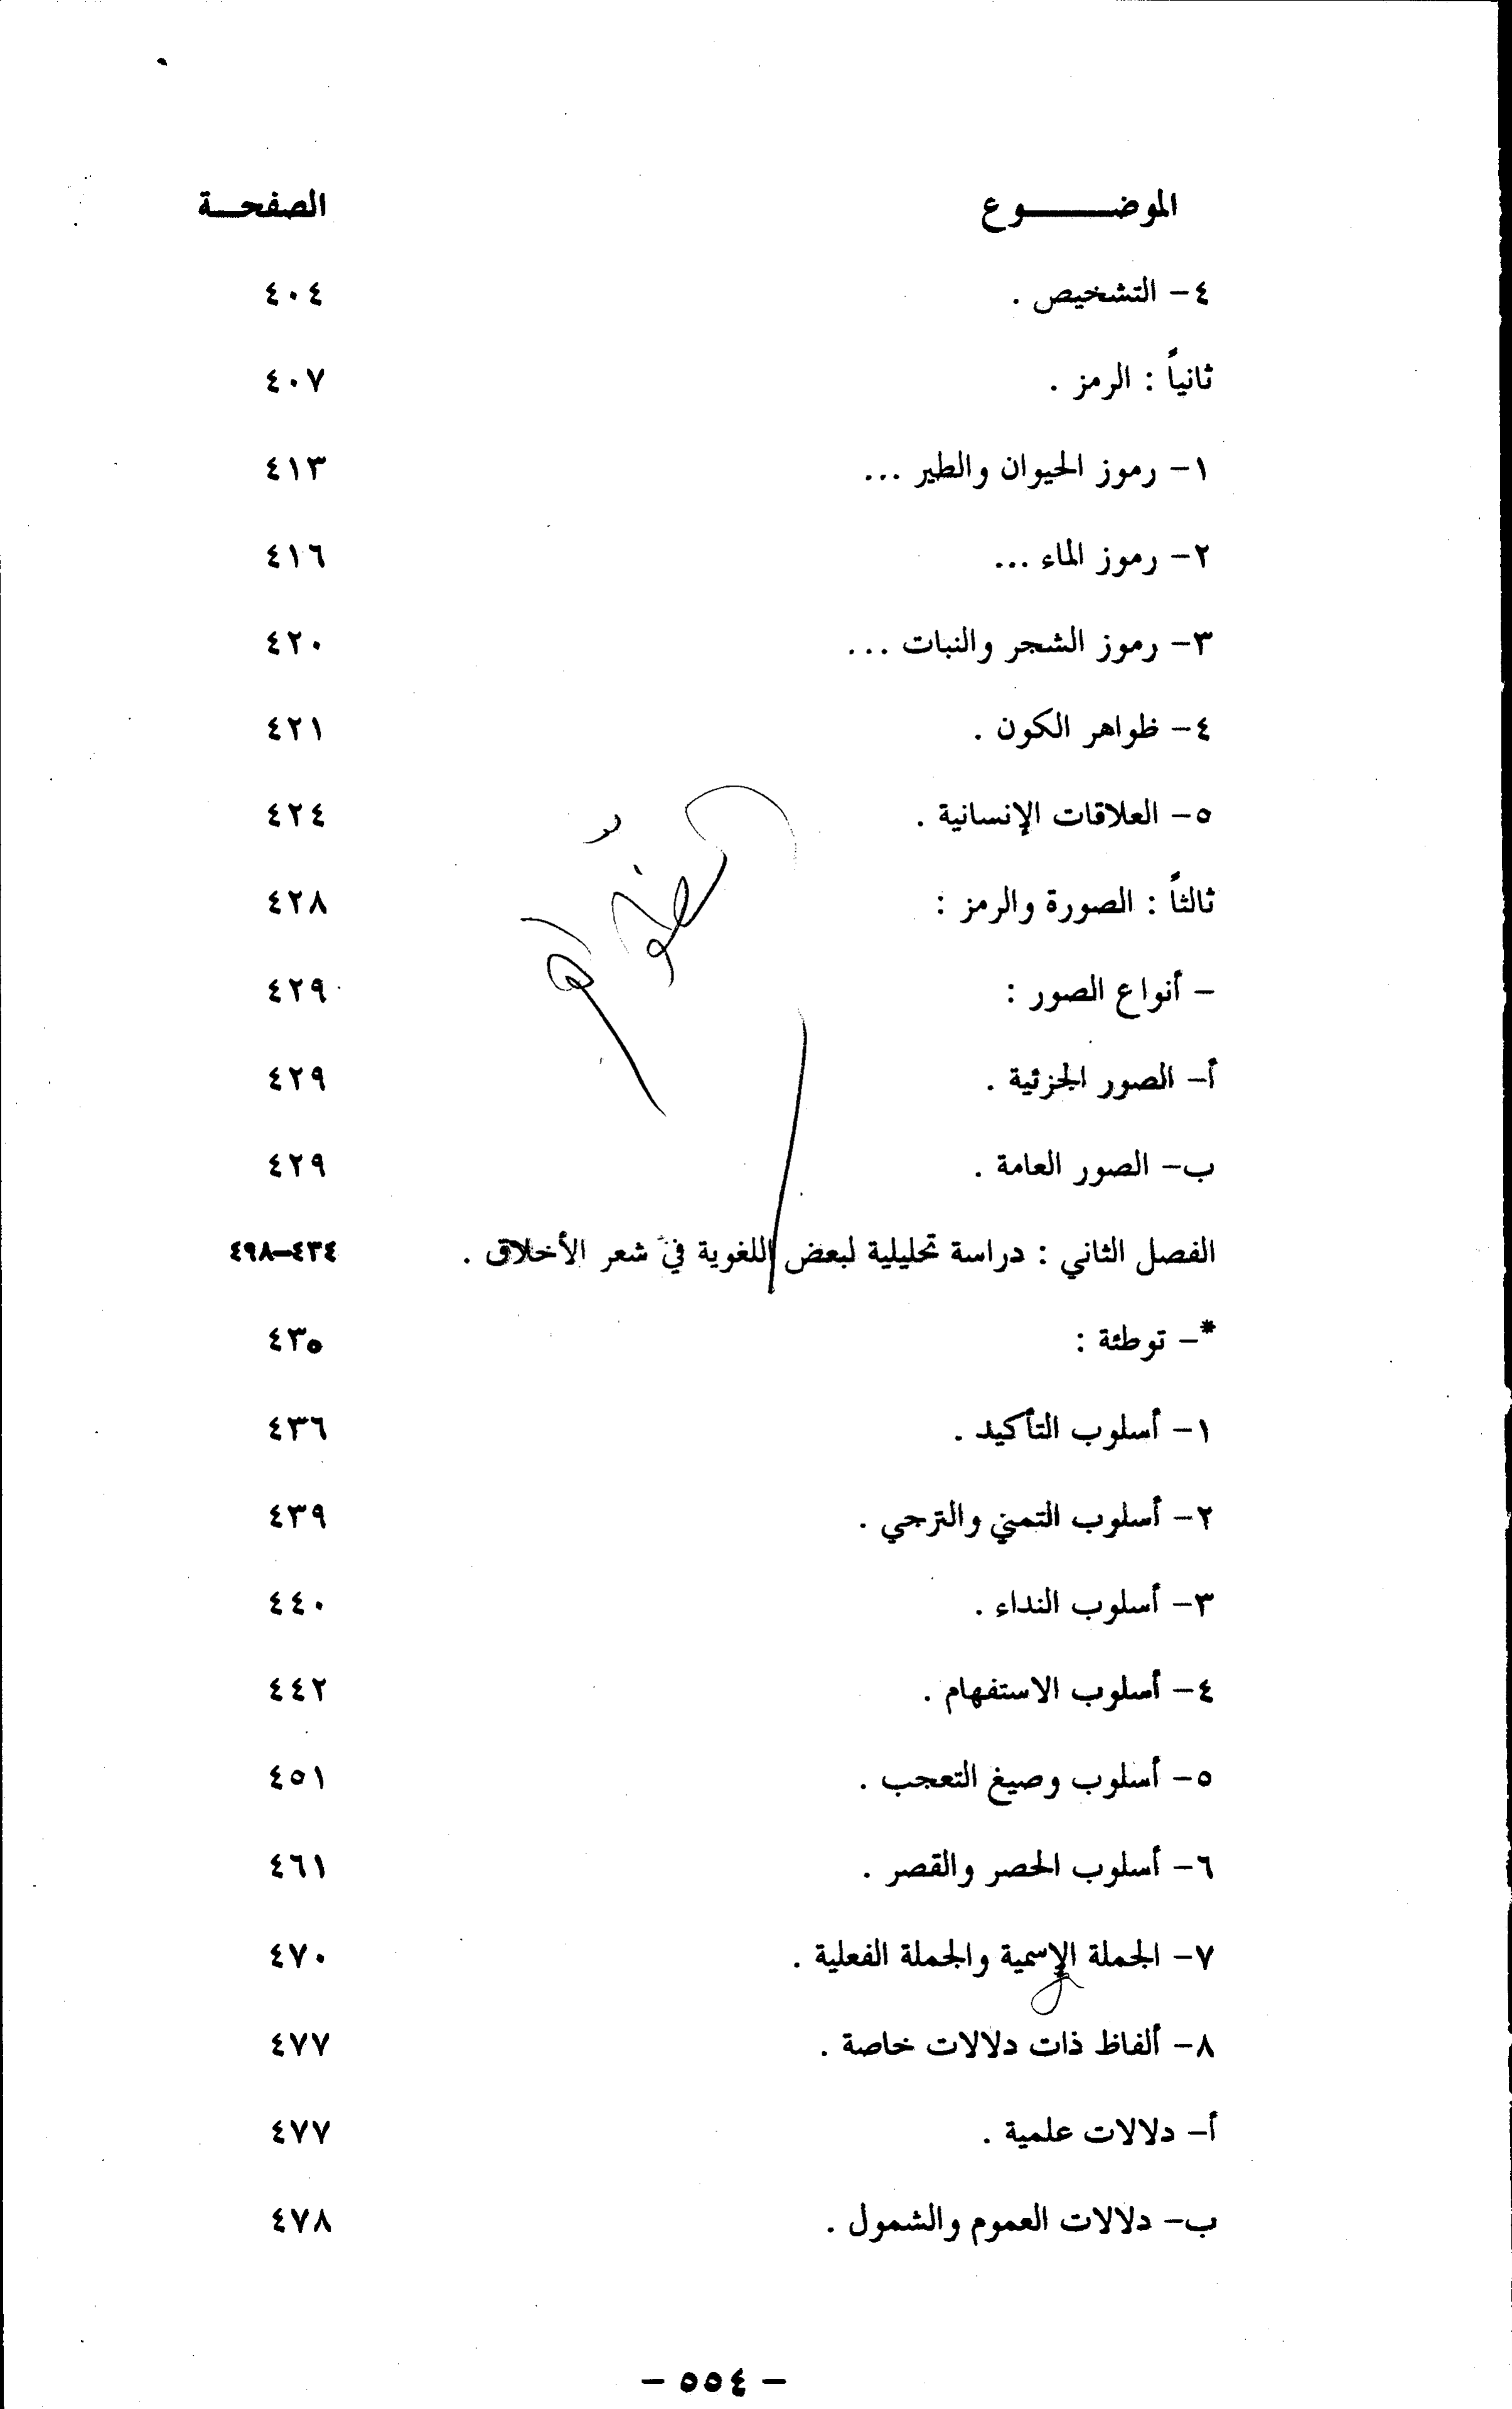 الموضوع الصفحة
٤- التشخيص . ٤٠٤
ثانياً : الرمز . ٤٠٧
١- رموز الحيوان والطير ... ٤١٣
٢- رموز الماء ... ٤١٦
٣- رموز الشجر والنبات ... ٤٢٠
٤- ظواهر الكون . ٤٢١
٥- العلاقات الإنسانية . ٤٢٤
ثالثاً : الصورة والرمز : ٤٢٨
- أنواع الصور : ٤٢٩
أ- الصور الجزئية . ٤٢٩
ب- الصور العامة . ٤٢٩
الفصل الثاني : دراسة تحليلية لبعض اللغوية في شعر الأخلاق . ٤٣٤-٤٩٨
*- توطئة : ٤٣٥
١- أسلوب التأكيد . ٤٣٦
٢- أسلوب التمني والترجي . ٤٣٩
٣- أسلوب النداء . ٤٤٠
٤- أسلوب الاستفهام . ٤٤٢
٥- أسلوب وصيغ التعجب . ٤٥١
٦- أسلوب الحصر والقصر . ٤٦١
٧- الجملة الإسمية والجملة الفعلية . ٤٧٠
٨- ألفاظ ذات دلالات خاصة . ٤٧٧
أ- دلالات علمية . ٤٧٧
ب- دلالات العموم والشمول . ٤٧٨
- ٥٥٤ -